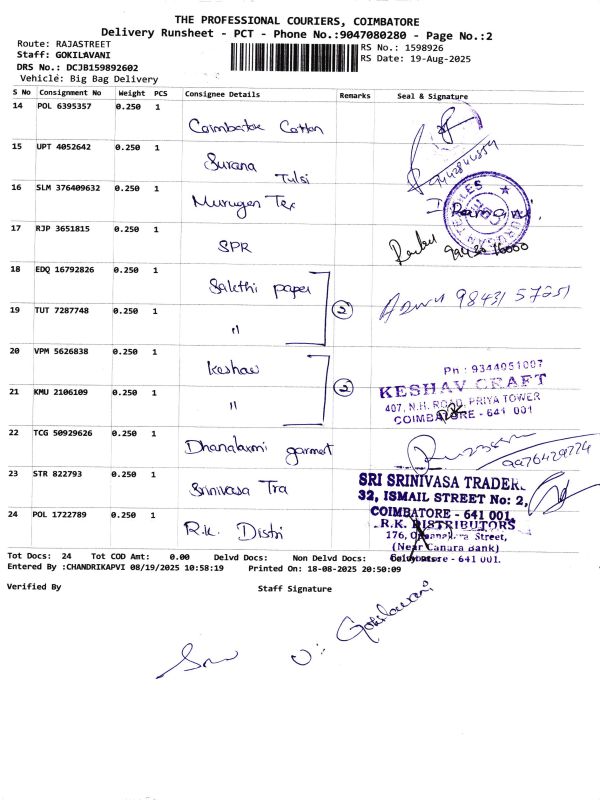 THE PROFESSIONAL COURIERS, COIMBATORE
Delivery Runsheet - PCT - Phone No.:9047080280 - Page No.:2
Route: RAJASTREET
Staff: GOKILAVANI
DRS No.: DCJB159892602
Vehicle: Big Bag Delivery
RS No.: 1598926
RS Date: 19-Aug-2025
S No Consignment No Weight PCS Consignee Details Remarks Seal & Signature
14 POL 6395357 0.250 1 Coimbatore Cotton
15 UPT 4052642 0.250 1 Surana Tulsi
16 SLM 376409632 0.250 1 Murugan Tex
17 RJP 3651815 0.250 1 SPR
18 EDQ 16792826 0.250 1 Sakthi paper 2
19 TUT 7287748 0.250 1 "
20 VPM 5626838 0.250 1 Keshav 2
21 KMU 2106109 0.250 1 "
22 TCG 50929626 0.250 1 Dhanalaxmi garment
23 STR 822793 0.250 1 Srinivasa Tra
24 POL 1722789 0.250 1 R.K. Distri
98431 57251
Ph : 9344051007
KESHAV CRAFT
407, N.H. ROAD, PRIYA TOWER
COIMBATORE - 641 001
9976429774
SRI SRINIVASA TRADER
32, ISMAIL STREET No: 2,
COIMBATORE - 641 001.
R.K. DISTRIBUTORS
176, Street,
(Near Canara Bank)
Coimbatore - 641 001.
Tot Docs: 24 Tot COD Amt: 0.00 Delvd Docs: Non Delvd Docs:
Entered By :CHANDRIKAPVI 08/19/2025 10:58:19 Printed On: 18-08-2025 20:50:09
Verified By Staff Signature
V. Gokilavani